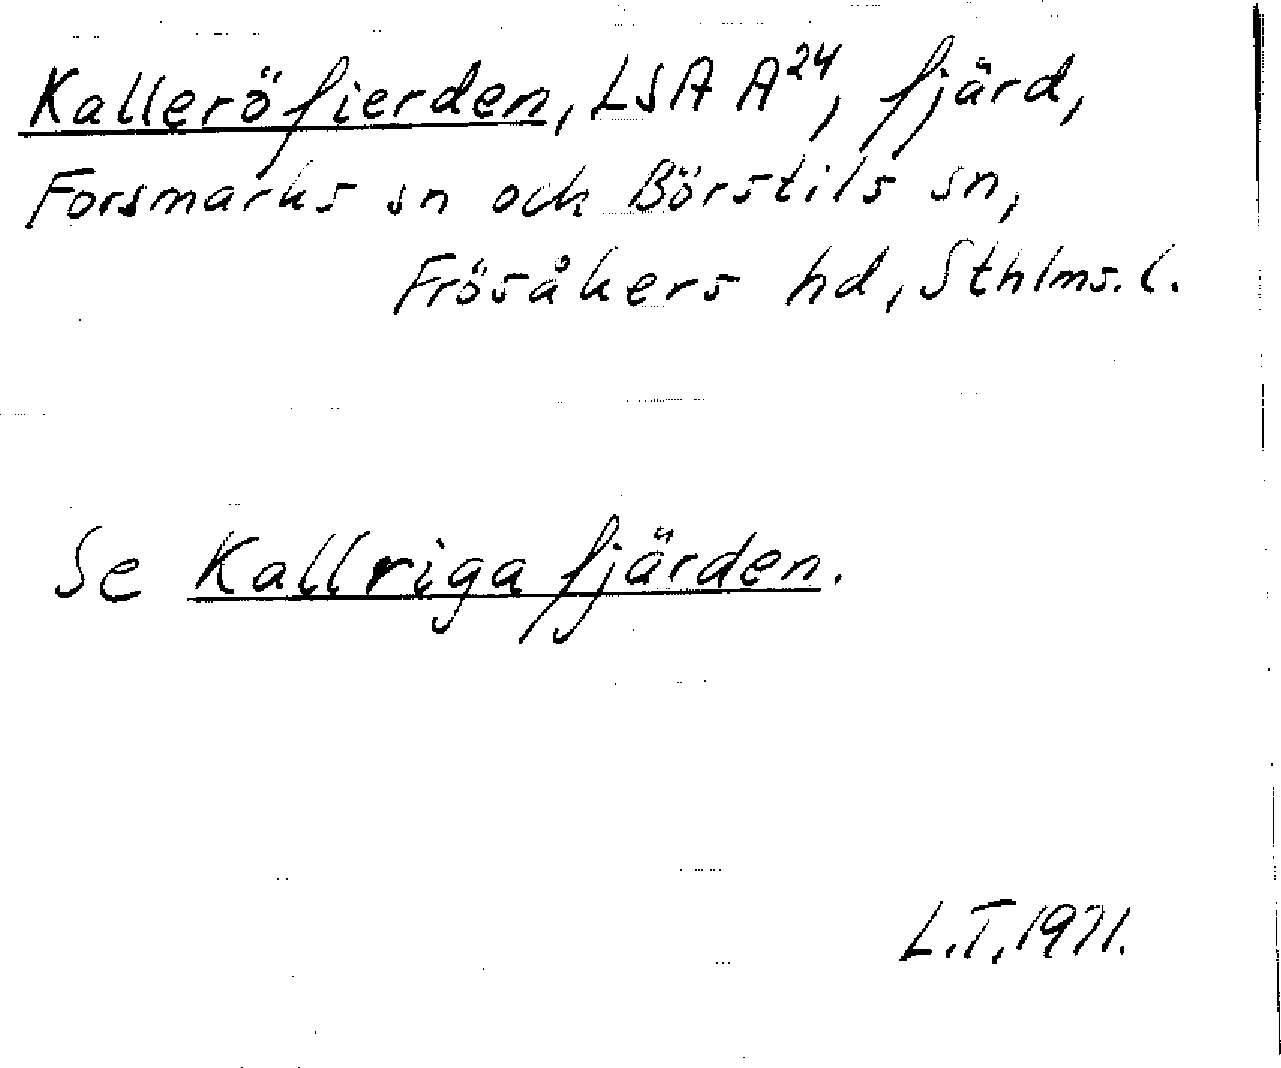 Kalleröfierden, LSA A²⁴, fjärd,
Forsmarks sn och Börstils sn,
Frösåkers hd, Sthlms. l.
Se Kallrigafjärden.
L.T. 1971.